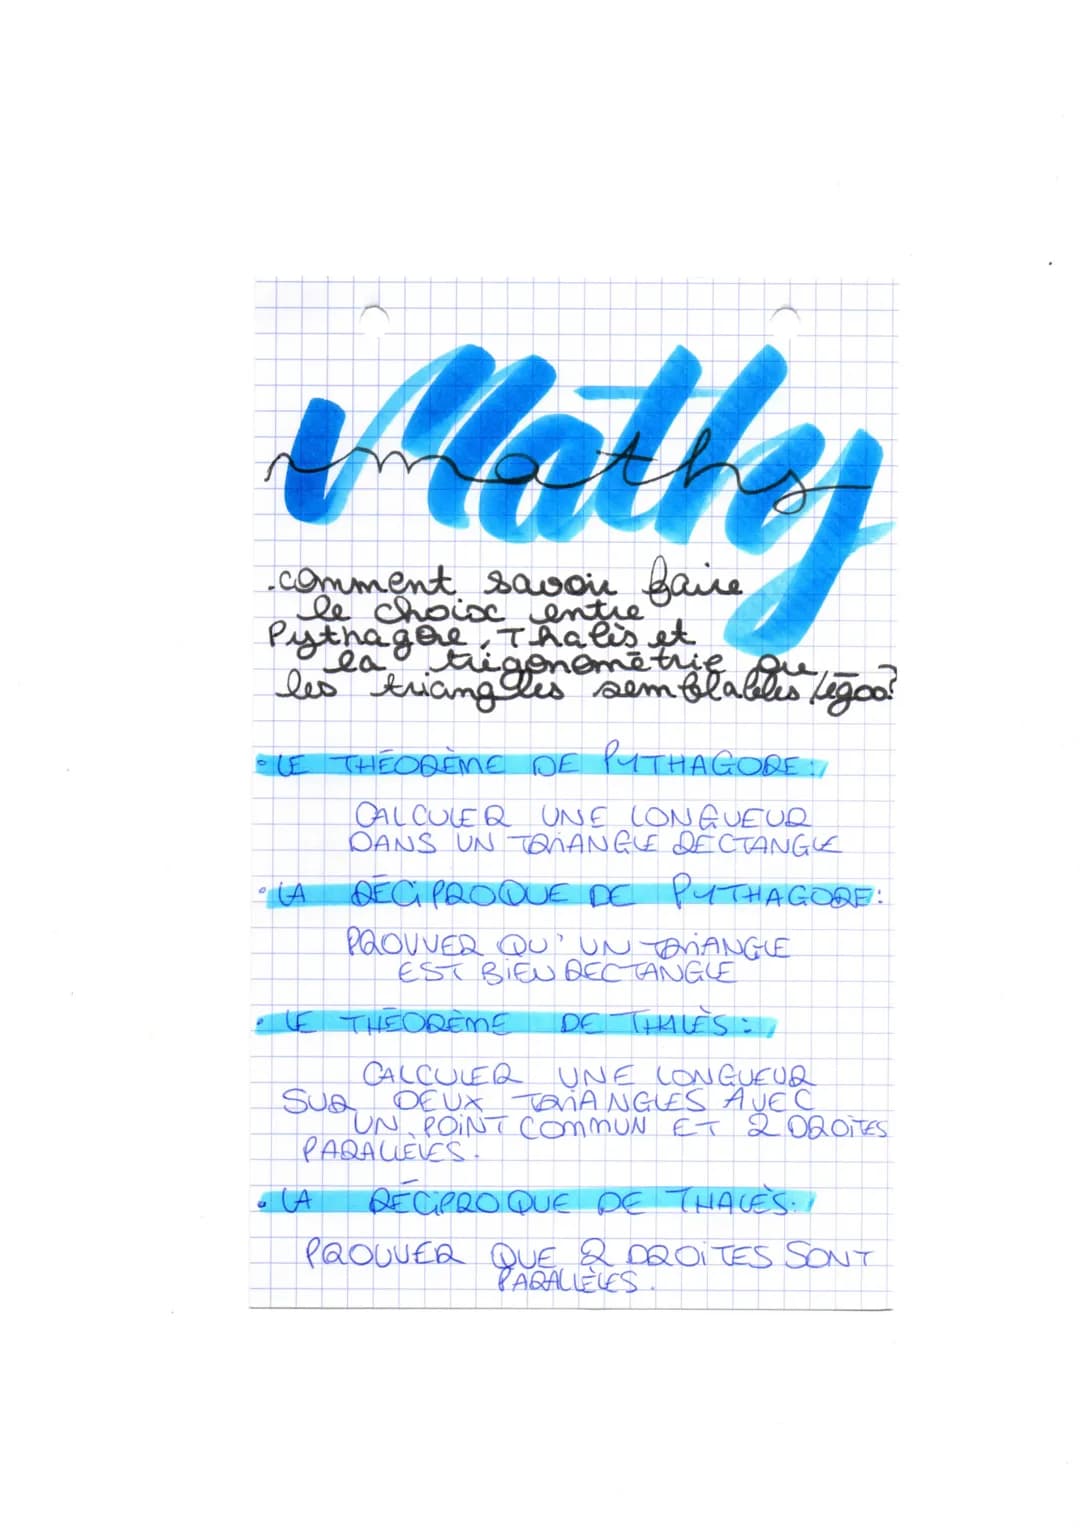 Maths
maths
.comment savoir faire
le choix entre
Pythagore, Thalès et
la trigonométrie ou
les triangles semblables/égaux?
• LE THÉORÈME DE PYTHAGORE:
CALCULER UNE LONGUEUR
DANS UN TRIANGLE RECTANGLE
• LA RÉCIPROQUE DE PYTHAGORE:
PROUVER QU'UN TRIANGLE
EST BIEN RECTANGLE
• LE THÉORÈME DE THALÈS:
CALCULER UNE LONGUEUR
SUR DEUX TRIANGLES AVEC
UN POINT COMMUN ET 2 DROITES
PARALLÈLES.
• LA RÉCIPROQUE DE THALÈS:
PROUVER QUE 2 DROITES SONT
PARALLÈLES.